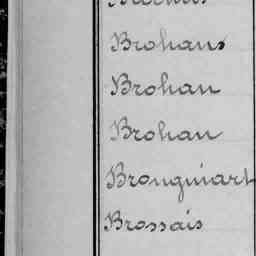 Brohans
Brohan
Brohan
Brongniart
Brossais